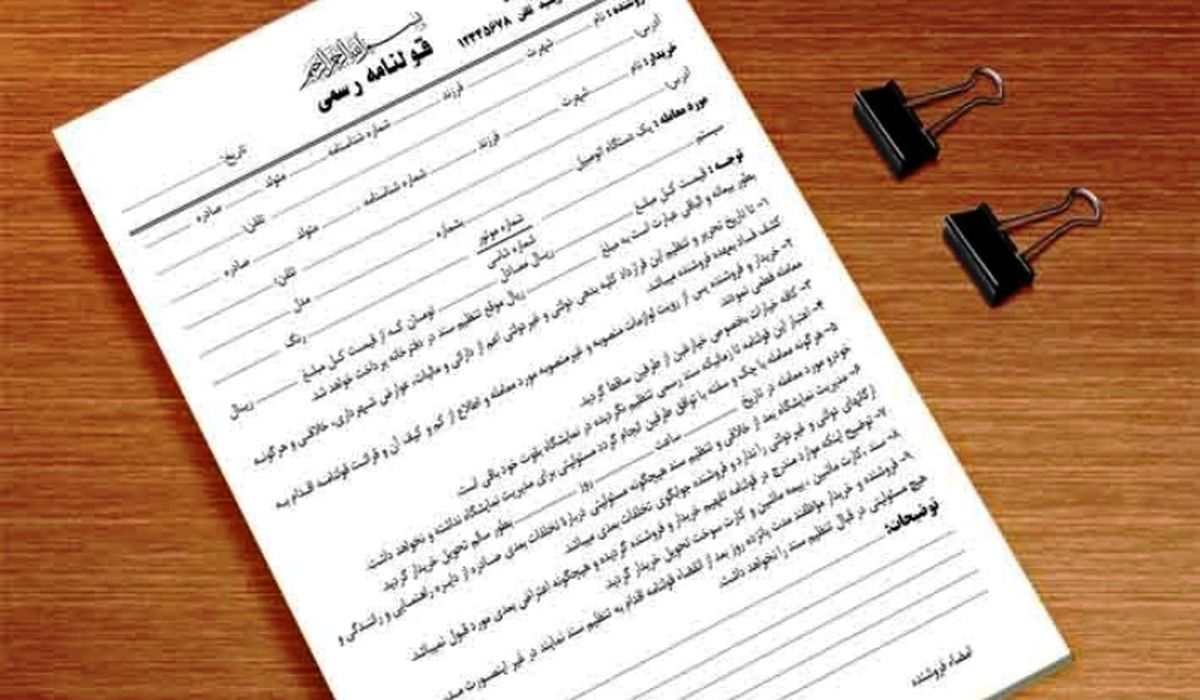 بسم الله الرحمن الرحیم
قولنامه رسمی
تلفن ۱۲۳۴۵۶۷۸
تاریخ:
فروشنده: نام شهرت فرزند شماره شناسنامه متولد صادره
آدرس: تلفن:
خریدار: نام شهرت فرزند شماره شناسنامه متولد صادره
آدرس: تلفن:
مورد معامله: یک دستگاه اتومبیل شماره مدل
سیستم شماره موتور شماره شاسی رنگ
توجه: قیمت کل مبلغ ریال معادل تومان که از قیمت کل مبلغ ریال
بطور بیعانه و الباقی عبارت است به مبلغ ریال موقع تنظیم سند در دفترخانه پرداخت خواهد شد.
۱- تا تاریخ تحریر و تنظیم این قرارداد کلیه بدهی دولتی و غیردولتی اعم از دارائی و مالیات، عوارض شهرداری، خلافی و هرگونه
کشف فساد بعهده فروشنده میباشد.
۲- خریدار و فروشنده پس از رویت لوازمات منصوبه و غیرمنصوبه مورد معامله و اطلاع از کم و کیف آن و قرائت قولنامه اقدام به
معامله قطعی نمودند.
۳- کافه خیارات بخصوص خیارغبن از طرفین ساقط گردید.
۴- اعتبار این قولنامه تا زمانیکه سند رسمی تنظیم نگردیده در نمایشگاه بقوت خود باقی است.
۵- هرگونه معامله با چک و سفته با توافق طرفین انجام گردد مسئولیتی برای مدیریت نمایشگاه نداشته و نخواهد داشت.
خودرو مورد معامله در تاریخ ساعت روز بطور سالم تحویل خریدار گردید.
۶- مدیریت نمایشگاه بعد از خلافی و تنظیم سند هیچگونه مسئولیتی درباره تخلفات بعدی صادره از دایره راهنمایی و رانندگی و
ارگانهای دولتی و غیردولتی را ندارد و فروشنده جوابگوی تخلفات بعدی میباشد.
۷- توضیح اینکه موارد مندرج در قولنامه تفهیم خریدار و فروشنده گردیده و هیچگونه اعتراض بعدی مورد قبول نمیباشد.
۸- سند، کارت ماشین، بیمه ماشین و کارت سوخت تحویل خریدار گردید.
۹- فروشنده و خریدار موظفند مدت پانزده روز بعد از انقضاء قولنامه اقدام به تنظیم سند نمایند در غیر اینصورت
هیچ مسئولیتی در قبال تنظیم سند را نخواهد داشت.
توضیحات:
امضاء فروشنده